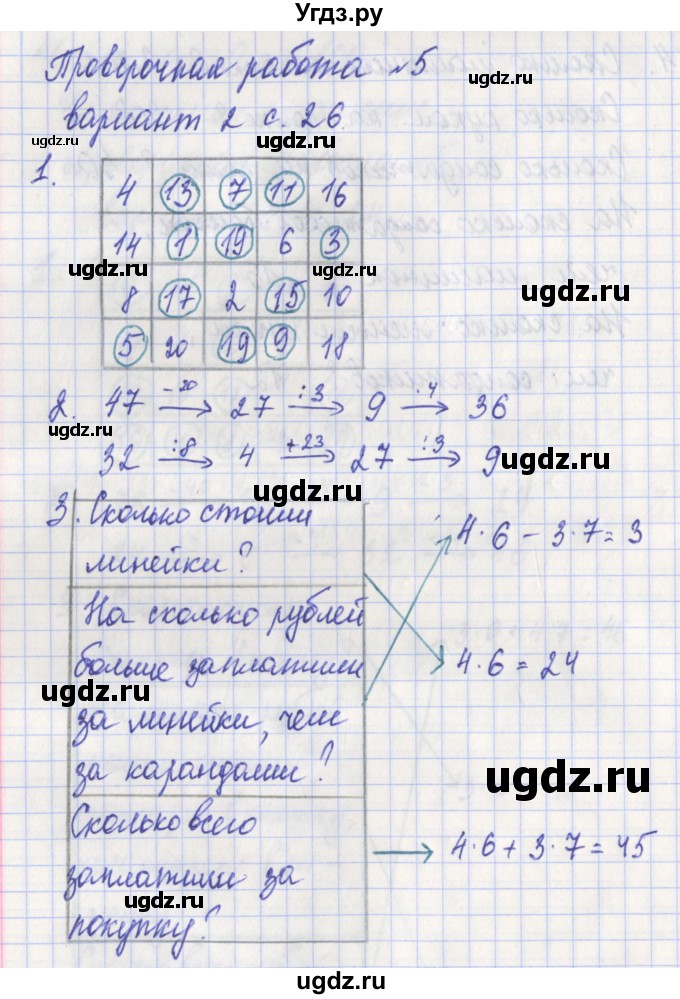 Угдз.ру
Проверочная работа №5
вариант 2 с. 26.
ugdz.ru
ugdz.ru
1.
4 13 7 11 16
14 1 19 6 3
ugdz.ru
ugdz.ru
8 17 2 15 10
ugdz.ru
5 20 19 9 18
ugdz.ru
2. 47 -20→ 27 :3→ 9 :4→ 36
ugdz.ru
32 :8→ 4 +23→ 27 :3→ 9
ugdz.ru
ugdz.ru
3. Сколько стоили
линейки?
4·6 - 3·7 = 3
На сколько рублей
больше заплатили
за линейки, чем
за карандаши?
4·6 = 24
ugdz.ru
ugdz.ru
Сколько всего
заплатили за
покупку?
4·6 + 3·7 = 45
ugdz.ru
ugdz.ru
ugdz.ru